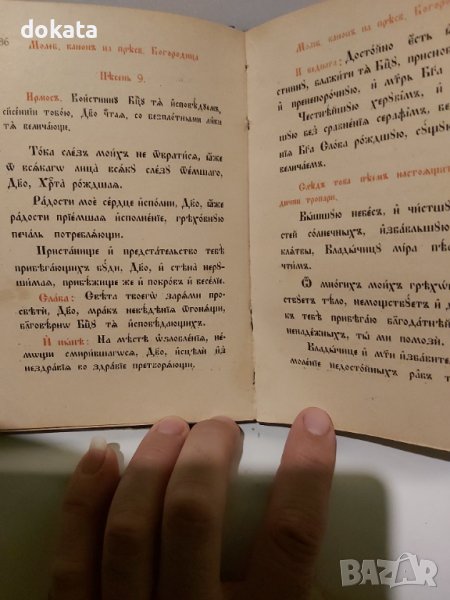 dokata
86 Молеб. канонъ на прѣсв. Богородица
Пѣсень 9.
Ирмосъ. Воистинꙋ Бц҃ꙋ тѧ исповѣдꙋемъ,
сп҃сеннїи тобою, Дв҃о чт҃аѧ, со безплотными лики
тѧ величающи.
Тока слезъ моихъ не ѿвратисѧ, ꙗже
ѿ всѧкагѡ лица всѧкꙋ слезꙋ ѿемшаго,
Дв҃о, Хр҇та рождшаѧ.
Радости мое сердце исполни, Дв҃о, ꙗже
радости прїемшаѧ исполненїе, грѣховнꙋю
печаль потреблѧющи.
Пристанище и предстательство тебѣ
прибѣгающихъ бꙋди, Дв҃о, и стѣна нерꙋ-
шимаѧ, прибѣжище же и покровъ и веселїе.
Слава: Свѣта твоегѡ зарѧми про-
свѣти, Дв҃о, мракъ невѣдѣнїѧ ѿгонѧщи,
благовѣрнѡ Бц҃ꙋ тѧ исповѣдающихъ.
И нынѣ: На мѣстѣ ѡѕлобленїѧ, не-
мощи смирившагосѧ, Дв҃о, исцѣли из
нездравїѧ во здравїе претворѧющи.
Молеб. канонъ на прѣсв. Богород
И веднага: Достойно есть
стиннꙋ, блажити тѧ Бц҃ꙋ, присно
и пренепорочнꙋю, и мт҃рь Бг҃а
Честнѣйшꙋю херꙋвїмъ, и
шꙋю без сравненїѧ серафїмъ, без
нїѧ Бг҃а Слова рождшꙋю, сꙋщꙋю
величаемъ.
Слѣдъ това пѣемъ настоѧщит
дични тропари.
Вышшꙋю небесъ, и чистшꙋ
стей солнечныхъ, избавльшꙋю
клѧтвы, Владычицꙋ мїра пѣ
чтимъ.
Ѿ многихъ моихъ грѣхѡ
ствꙋетъ тѣло, немощствꙋетъ и д
къ тебѣ прибѣгаю благодатнѣй
ненадежныхъ, ты ми помози.
Владычице и мт҃и избавите
моленїе недостойныхъ рабъ т
BAZAR